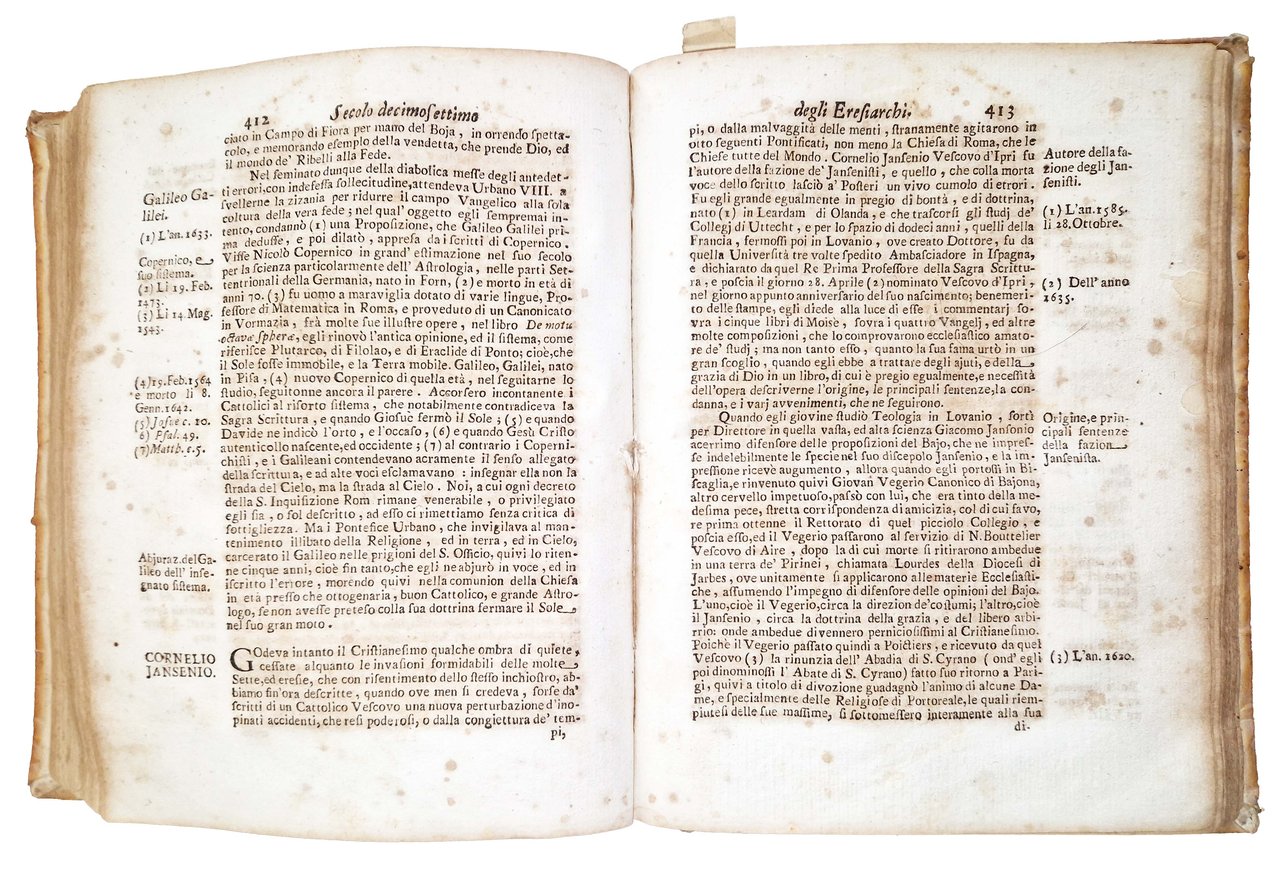 412
Secolo decimosettimo
ciato in Campo di Fiora per mano del Boja, in orrendo spetta-
colo, e memorando esempio della vendetta, che prende Dio, ed
il mondo de' Ribelli alla Fede.
Nel seminato dunque della diabolica messe degli antedet-
ti errori, con indefessa sollecitudine, attendeva Urbano VIII. a
svellerne la zizania per ridurre il campo Vangelico alla sola
coltura della vera fede; nel qual' oggetto egli sempremai in-
tento, condannò (1) una Proposizione, che Galileo Galilei pri-
ma dedusse, e poi dilatò, appresa da i scritti di Copernico.
Visse Nicolò Copernico in grand' estimazione nel suo secolo
per la scienza particolarmente dell' Astrologia, nelle parti Set-
tentrionali della Germania, nato in Forn, (2) e morto in età di
anni 70. (3) fu uomo a maraviglia dotato di varie lingue, Pro-
fessore di Matematica in Roma, e proveduto di un Canonicato
in Vormazia, frà molte sue illustre opere, nel libro De motu
octavæ spheræ, egli rinovò l'antica opinione, ed il sistema, come
riferisce Plutarco, di Filolao, e di Eraclide di Ponto; cioè, che
il Sole fosse immobile, e la Terra mobile. Galileo, Galilei, nato
in Pisa, (4) nuovo Copernico di quella età, nel seguitarne lo
studio, seguitonne ancora il parere. Accorsero incontanente i
Cattolici al risorto sistema, che notabilmente contradiceva la
Sagra Scrittura, e quando Giosuè fermò il Sole; (5) e quando
Davide ne indicò l'orto, e l'occaso, (6) e quando Gesù Cristo
autenticollo nascente, ed occidente; (7) al contrario i Coperni-
chisti, e i Galileani contendevano acramente il senso allegato
della scrittura, e ad alte voci esclamavano: insegnar ella non la
strada del Cielo, ma la strada al Cielo. Noi, a cui ogni decreto
della S. Inquisizione Rom rimane venerabile, o privilegiato
egli sia, o sol descritto, ad esso ci rimettiamo senza critica di
sottigliezza. Ma i Pontefice Urbano, che invigilava al man-
tenimento illibato della Religione, ed in terra, ed in Cielo,
carcerato il Galileo nelle prigioni del S. Officio, quivi lo riten-
ne cinque anni, cioè fin tanto, che egli ne abjurò in voce, ed in
iscritto l'errore, morendo quivi nella comunion della Chiesa
in età presso che ottogenaria, buon Cattolico, e grande Astro-
logo, se non avesse preteso colla sua dottrina fermare il Sole
nel suo gran moto.
GOdeva intanto il Cristianesimo qualche ombra di quiete,
cessate alquanto le invasioni formidabili delle molte
Sette, ed eresie, che con risentimento dello stesso inchiostro, ab-
biamo fin'ora descritte, quando ove men si credeva, sorse da'
scritti di un Cattolico Vescovo una nuova perturbazione d'ino-
pinati accidenti, che resi poderosi, o dalla congiettura de' tem-
pi,
Galileo Ga-
lilei.
(1) L'an. 1633.
Copernico, e
suo sistema.
(2) Li 19. Feb.
1473.
(3) Li 14. Mag.
1543.
(4) 19. Feb. 1564
e morto li 8.
Genn. 1642.
(5) Josue c. 10.
6) Psal. 49.
(7) Matth. c. 5.
Abjuraz. del Ga-
lileo dell' inse-
gnato sistema.
CORNELIO
JANSENIO.
degli Eresiarchi.
413
pi, o dalla malvaggità delle menti, stranamente agitarono in
otto seguenti Pontificati, non meno la Chiesa di Roma, che le
Chiese tutte del Mondo. Cornelio Jansenio Vescovo d'Ipri fu
l'autore della fazione de' Jansenisti, e quello, che colla morta
voce dello scritto lasciò a' Posteri un vivo cumolo di errori.
Fu egli grande egualmente in pregio di bontà, e di dottrina,
nato (1) in Leardam di Olanda, e che trascorsi gli studj de'
Collegj di Uttecht, e per lo spazio di dodeci anni, quelli della
Francia, fermossi poi in Lovanio, ove creato Dottore, fu da
quella Università tre volte spedito Ambasciadore in Ispagna,
e dichiarato da quel Re Prima Professore della Sagra Scrittu-
ra, e poscia il giorno 28. Aprile (2) nominato Vescovo d'Ipri,
nel giorno appunto anniversario del suo nascimento; benemeri-
to delle stampe, egli diede alla luce di esse i commentarj so-
vra i cinque libri di Moisè, sovra i quattro Vangelj, ed altre
molte composizioni, che lo comprovarono ecclesiastico amato-
re de' studj; ma non tanto esso, quanto la sua fama urtò in un
gran scoglio, quando egli ebbe a trattare degli ajuti, e della
grazia di Dio in un libro, di cui è pregio egualmente, e necessità
dell'opera descriverne l'origine, le principali sentenze, la con-
danna, e i varj avvenimenti, che ne seguirono.
Quando egli giovine studiò Teologia in Lovanio, sortì
per Direttore in quella vasta, ed alta scienza Giacomo Jansonio
acerrimo difensore delle proposizioni del Bajo, che ne impres-
se indelebilmente le specie nel suo discepolo Jansenio, e la im-
pressione ricevè augumento, allora quando egli portossi in Bi-
scaglia, e rinvenuto quivi Giovan Vegerio Canonico di Bajona,
altro cervello impetuoso, passò con lui, che era tinto della me-
desima pece, stretta corrispondenza di amicizia, col di cui favo,
re prima ottenne il Rettorato di quel picciolo Collegio, e
poscia esso, ed il Vegerio passarono al servizio di N. Bouttelier
Vescovo di Aire, dopo la di cui morte si ritirarono ambedue
in una terra de' Pirinei, chiamata Lourdes della Diocesi di
Jarbes, ove unitamente si applicarono alle materie Ecclesiasti-
che, assumendo l'impegno di difensore delle opinioni del Bajo.
L'uno, cioè il Vegerio, circa la direzion de' costumi; l'altro, cioè
il Jansenio, circa la dottrina della grazia, e del libero arbi-
trio: onde ambedue divennero perniciosissimi al Cristianesimo.
Poichè il Vegerio passato quindi a Poictiers, e ricevuto da quel
Vescovo (3) la rinunzia dell' Abadia di S. Cyrano (ond' egli
poi dinominossi l' Abate di S. Cyrano) fatto suo ritorno a Pari-
gi, quivi a titolo di divozione guadagnò l'animo di alcune Da-
me, e specialmente delle Religiose di Portoreale, le quali riem-
piutesi delle sue massime, si sottomessero interamente alla sua
di-
Autore della fa-
zione degli Jan-
senisti.
(1) L'an. 1585.
li 28. Ottobre.
(2) Dell' anno
1635.
Origine, e prin-
cipali sentenze
della fazion
Jansenista.
(3) L'an. 1620.